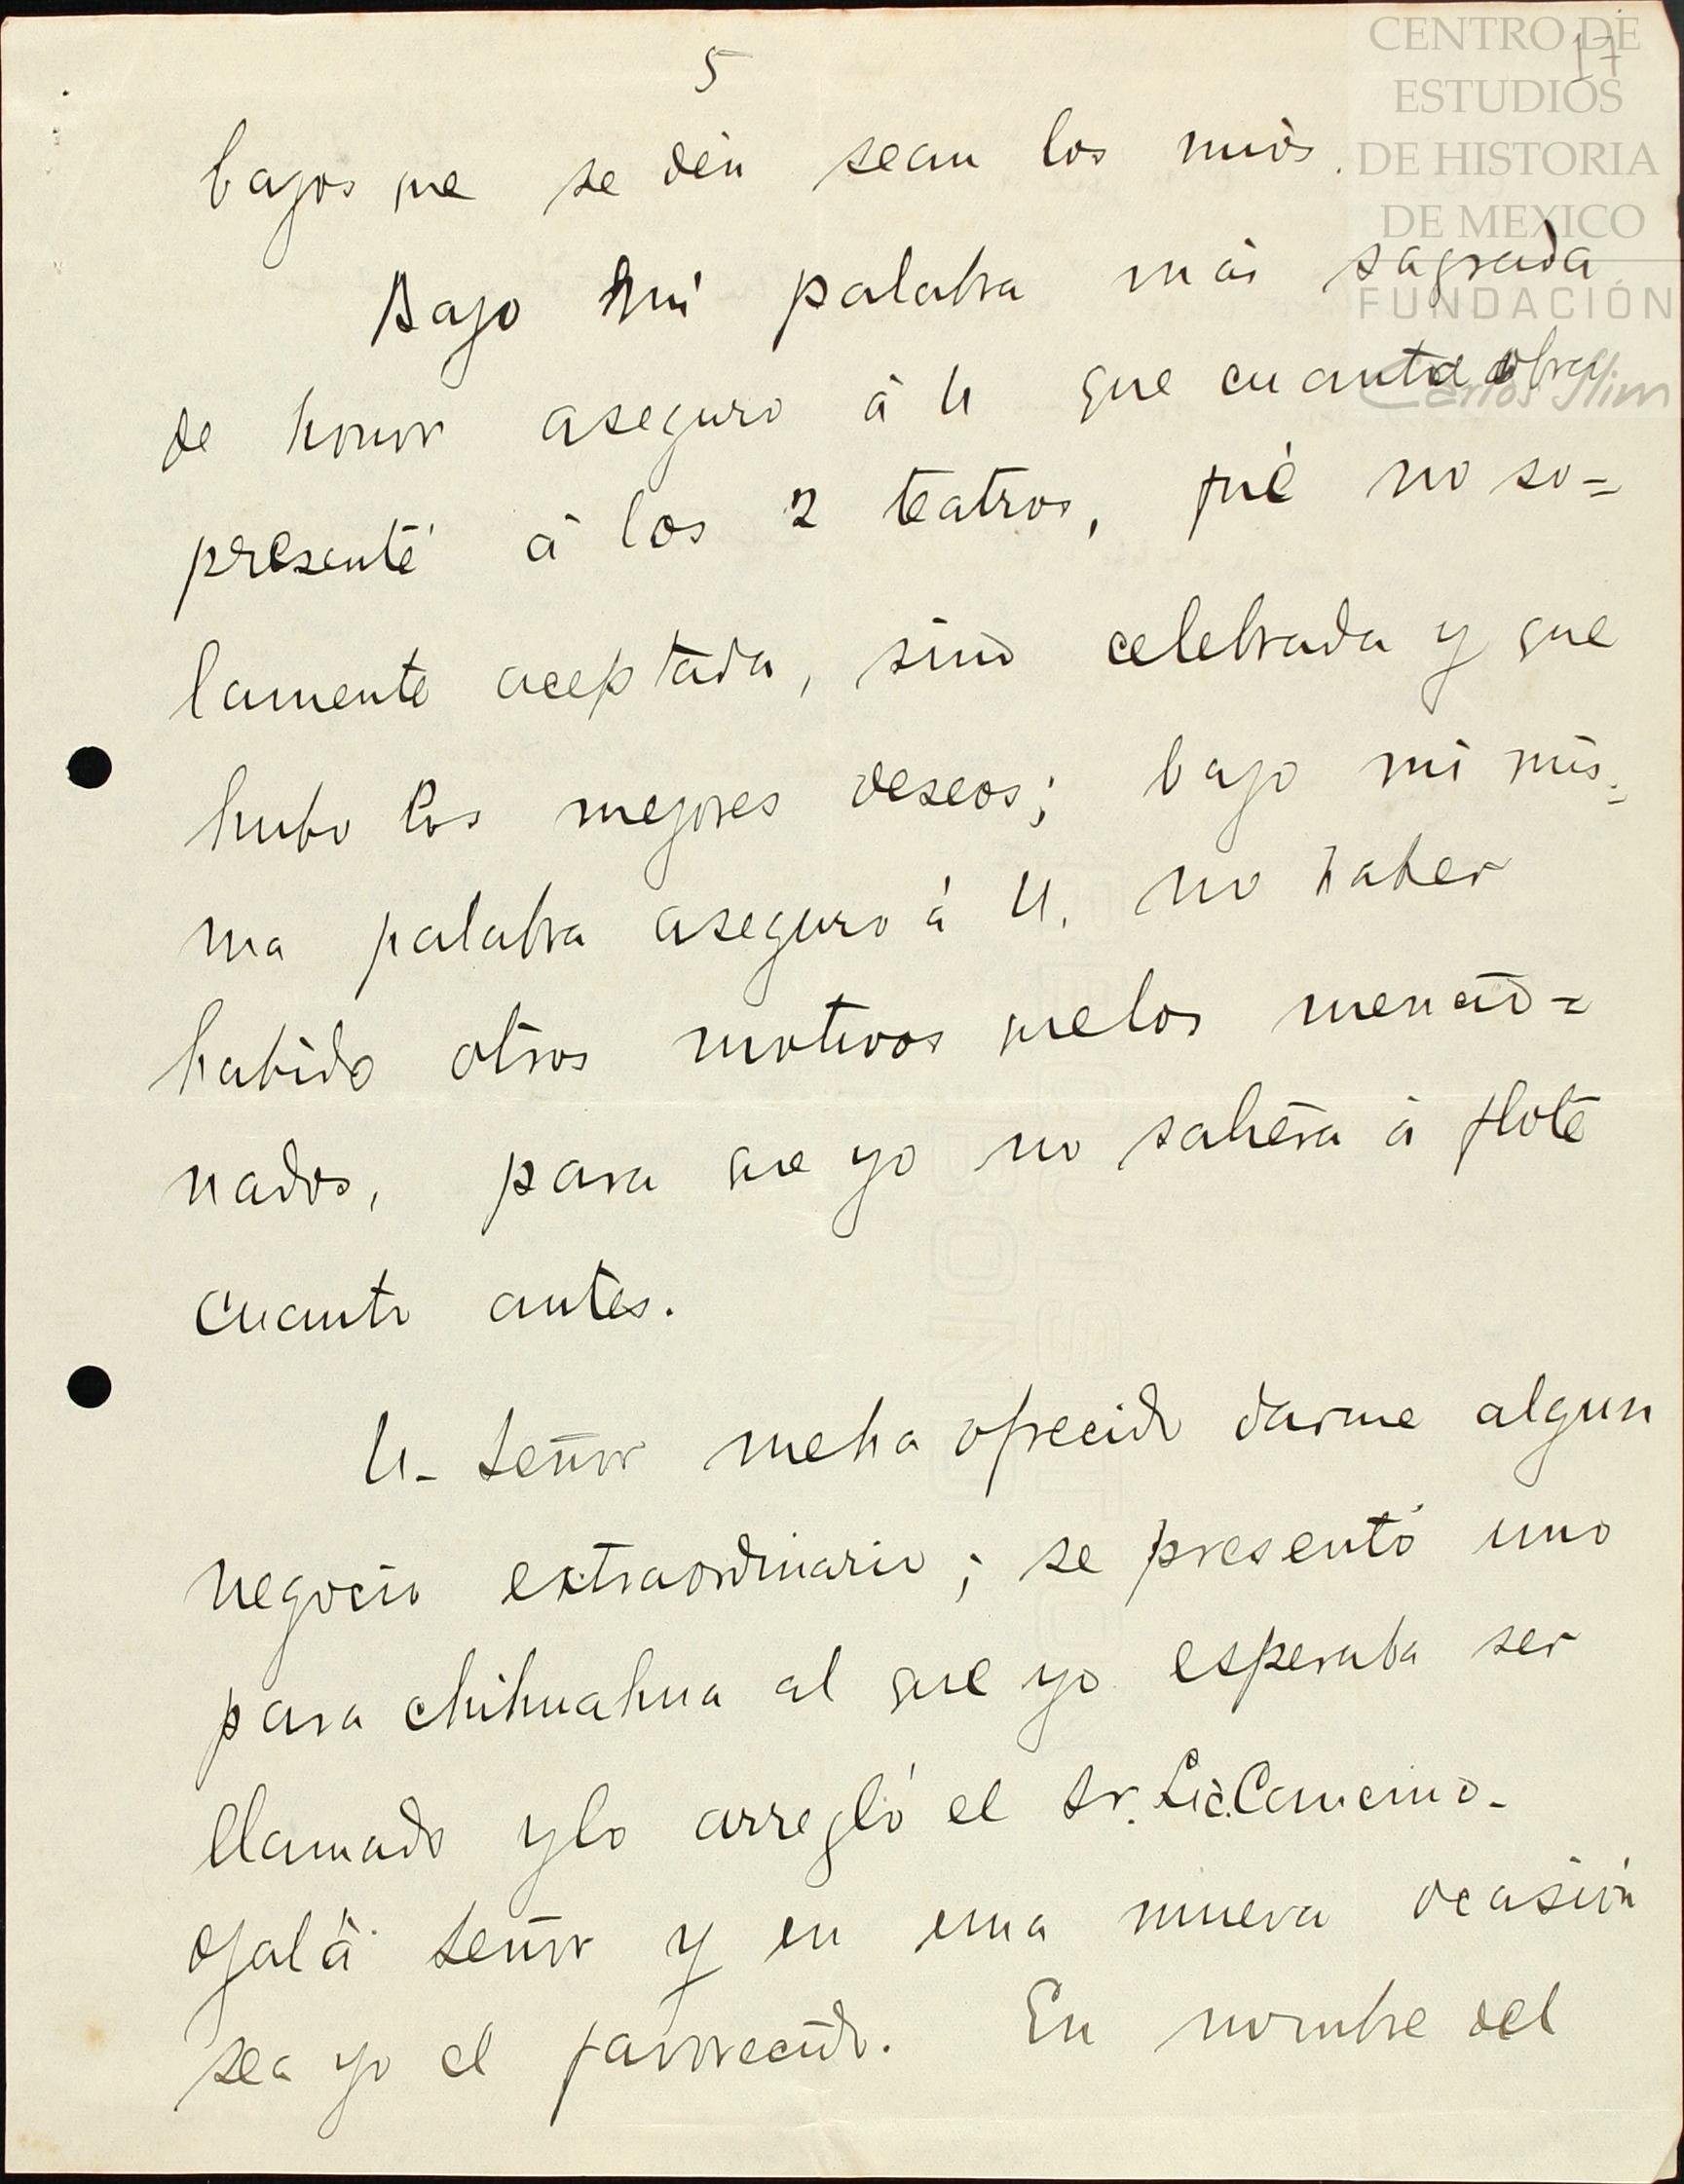 CENTRO DE
ESTUDIOS
DE HISTORIA
DE MEXICO
FUNDACIÓN
Carlos Slim
17
5
bajos que se dén sean los miós.
Bajo mi palabra más sagrada
de honor aseguro á U que cuanta obra
presenté á los 2 teatros, fué no so=
lamente aceptada, sinó celebrada y que
hubo los mejores deseos; bajo mi mis=
ma palabra aseguro á U. no haber
habido otros motivos que los mencio=
nados, para que yo no saliera á flote
cuanto antes.
U- Señor me ha ofrecido darme algun
negocio extraordinario; se presentó uno
para chihuahua al que yo esperaba ser
llamado y lo arregló el Sr. Lic. Cancino-
ojalá Señor y en una nueva ocasión
sea yo el favorecido. En nombre del